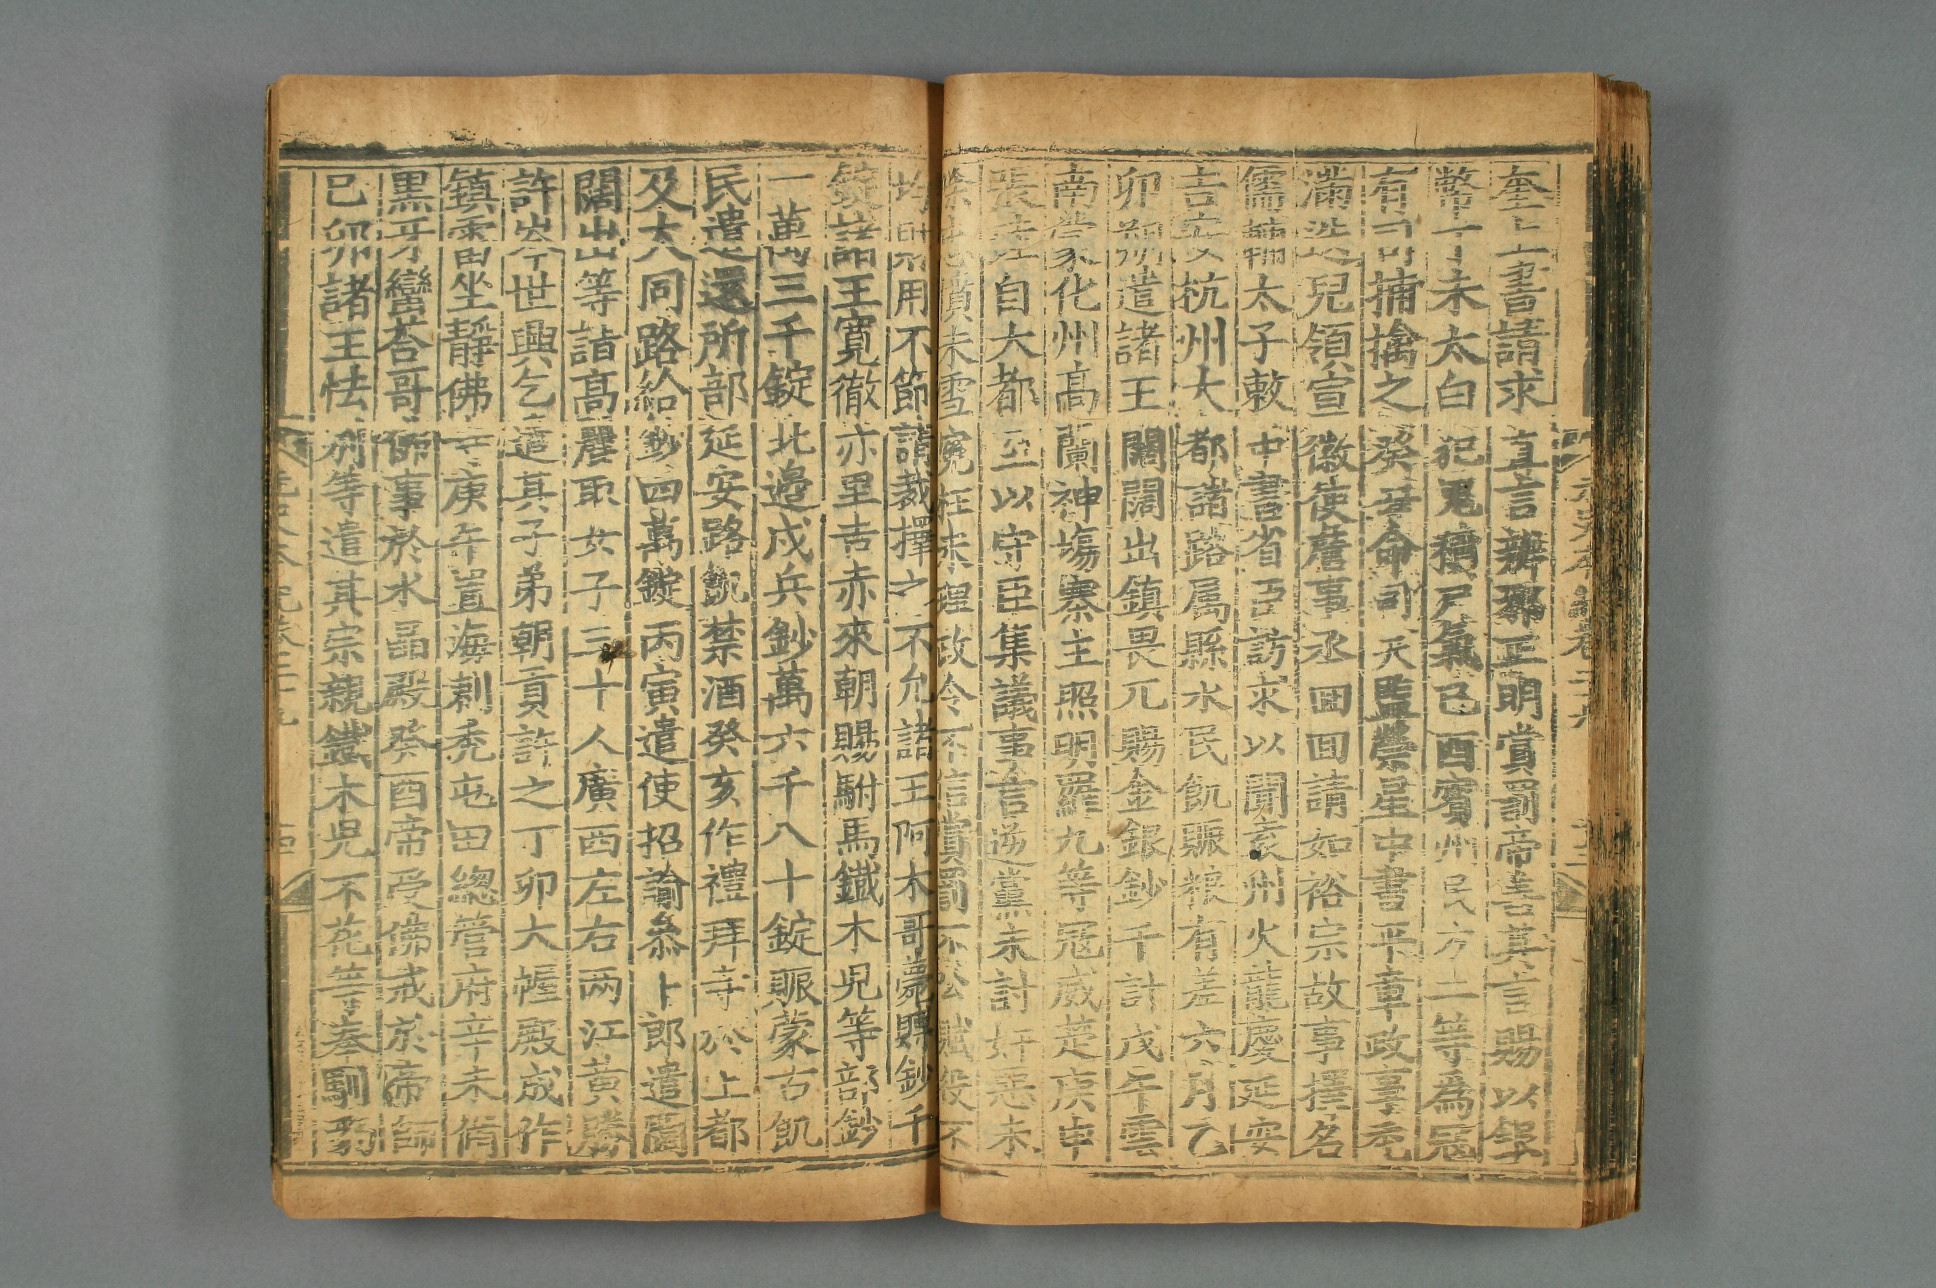 奎上書請求直言辨邪正明賞罰帝善其言賜以銀
幣丁未太白犯鬼積尸氣己酉賓州民方二等為寇
有司捕擒之癸丑命司天監禜星中書平章政事禿
滿迭兒領宣徽使詹事丞回回請如裕宗故事擇名
儒輔太子敕中書省臣訪求以聞袁州火龍慶延安
吉安杭州大都諸路属縣水民飢賑糧有差六月乙
卯朔遣諸王闊闊出鎮畏兀賜金銀鈔千計戊午雲
南蒙化州高蘭神塲寨主照明羅九等寇威楚庚申
張珪自大都至以守臣集議事言逆黨未討奸惡未
除忠憤未雪冤枉未理政令不信賞罰不公賦役不
均財用不節請裁擇之不允諸王阿木哥薨賻鈔千
錠諸王寛徹亦里吉赤來朝賜駙馬鐵木兒等部鈔
一萬三千錠北邊戍兵鈔萬六千八十錠賑蒙古飢
民遣還所部延安路飢禁酒癸亥作禮拜寺於上都
及大同路給鈔四萬錠丙寅遣使招諭叅卜郎遣闊
闊出等詣高麗取女子三十人廣西左右兩江黃勝
許岑世興乞遣其子弟朝貢許之丁卯大幄殿成作
鎮雷坐靜佛事庚午置海剌禿屯田緫管府辛未脩
黑牙蠻荅哥佛事於水晶殿癸酉帝受佛戒於帝師
己卯諸王怯別等遣其宗親鐵木兒不花等奉馴豹